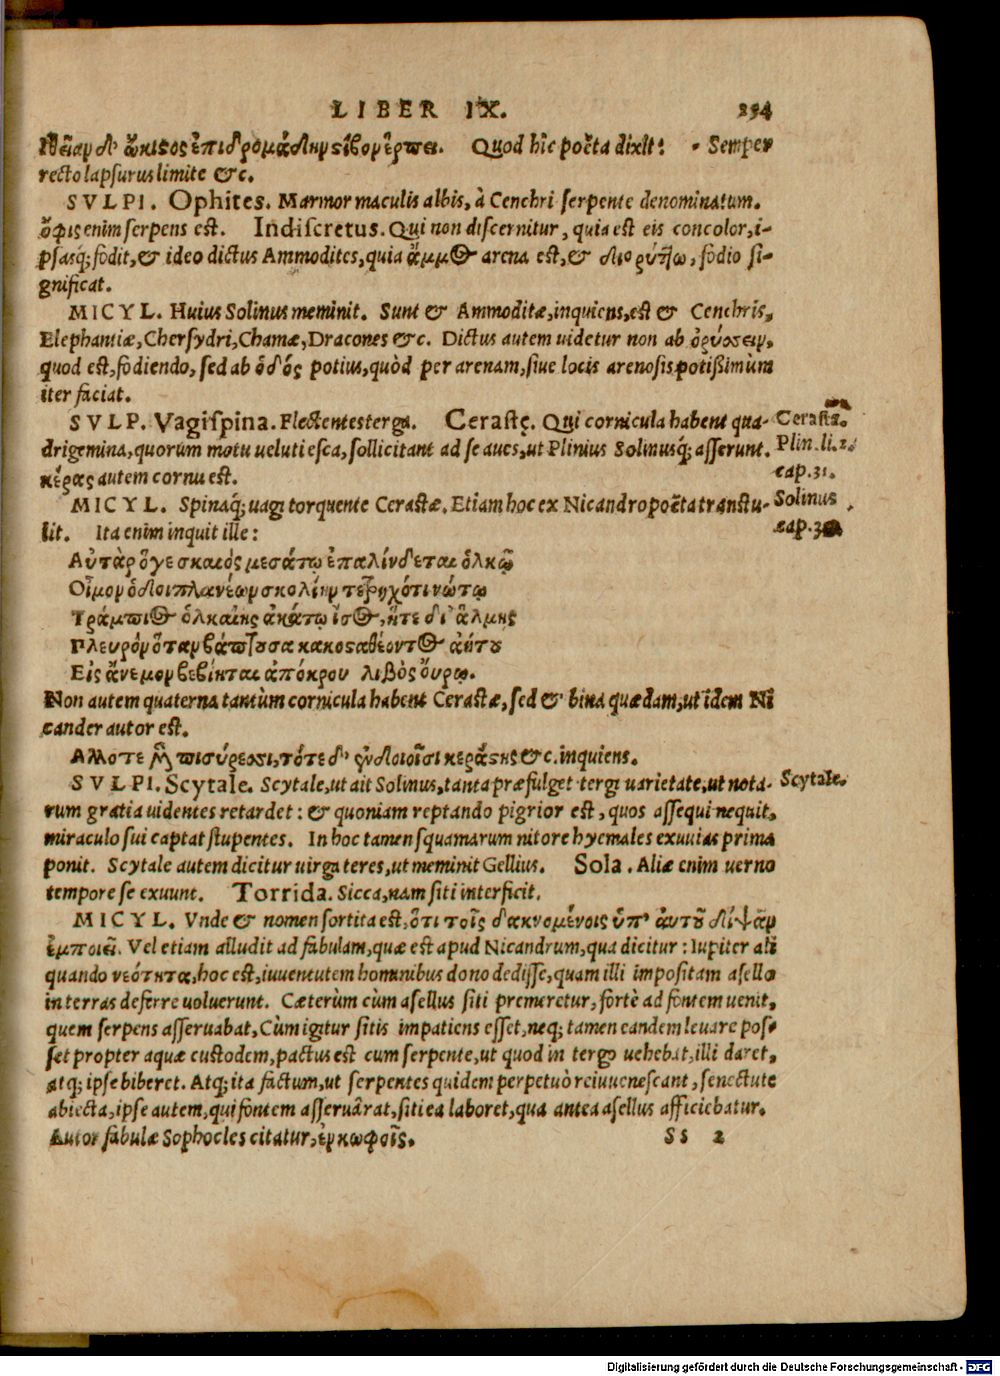 LIBER IX. 254
ὠκιςος ἐπιδρομάδην ςίβον ἕρπει. Quod hîc poëta dixit: • Semper
recto lapsurus limite &c.
SVLPI. Ophites. Marmor maculis albis, à Cenchri serpente denominatum.
ὄφις enim serpens est. Indiscretus. Qui non discernitur, quia est eis concolor, i-
psasq; fodit, & ideo dictus Ammodites, quia ἄμμος arena est, & fodio si-
gnificat.
MICYL. Huius Solinus meminit. Sunt & Ammoditæ, inquiens, est & Cenchris,
Elephantiæ, Chersydri, Chamæ, Dracones &c. Dictus autem uidetur non ab ὀρύσσειν,
quod est, fodiendo, sed ab ὁδός potius, quòd per arenam, siue locis arenosis potißimùm
iter faciat.
SVLP. Vagispina. Flectentes terga. Cerastę. Qui cornicula habent qua- Cerasta.
drigemina, quorum motu ueluti esca, sollicitant ad se aues, ut Plinius Solinusq; asserunt. Plin. li.
κέρας autem cornu est. cap. 31.
MICYL. Spinaq; uagi torquente Cerastæ. Etiam hoc ex Nicandro poëta transtu- Solinus
lit. Ita enim inquit ille: cap.
Αὐτὰρ ὅγε σκαιὸς μεσάτῳ ἐπαλίνδεται ὁλκῷ
Οἶμον ὁδοιπλανέων σκολίην τετρηχότι νώτῳ
Τράμπιος ὁλκαίης ἀκάτῳ ἶσος, ἥτε δι' ἅλμης
Πλευρὸν ὅταν βάπτουσα κακοσαθέοντος ἀήτου
Εἰς ἄνεμον βεβίηται ἀπόκρου λιβὸς οὔρῳ.
Non autem quaterna tantùm cornicula habent Cerastæ, sed & bina quædam, ut idem Ni
cander autor est.
Αλλοτε μὲν πισύρεσσι, τότε δ' ἐνδοιοῖσι κεράςης &c. inquiens.
SVLPI. Scytale. Scytale, ut ait Solinus, tanta præfulget tergi uarietate, ut nota- Scytale.
rum gratia uidentes retardet: & quoniam reptando pigrior est, quos assequi nequit,
miraculo sui captat stupentes. In hoc tamen squamarum nitore hyemales exuuias prima
ponit. Scytale autem dicitur uirga teres, ut meminit Gellius. Sola. Aliæ enim uerno
tempore se exuunt. Torrida. Sicca, nam siti interficit.
MICYL. Vnde & nomen sortita est, ὅτι τοῖς δακνομένοις ὑπ' αὐτοῦ δίψαν
ἐμποιεῖ. Vel etiam alludit ad fabulam, quæ est apud Nicandrum, qua dicitur: Iupiter ali
quando νεότητα, hoc est, iuuentutem hominibus dono dedisse, quam illi impositam asello
in terras deferre uoluerunt. Cæterùm cùm asellus siti premeretur, fortè ad fontem uenit,
quem serpens asseruabat, Cùm igitur sitis impatiens esset, neq; tamen eandem leuare pos-
set propter aquæ custodem, pactus est cum serpente, ut quod in tergo uehebat, illi daret,
atq; ipse biberet. Atq; ita factum, ut serpentes quidem perpetuò reiuuenescant, senectute
abiecta, ipse autem, qui fontem asseruârat, siti ea laboret, qua antea asellus afficiebatur.
Autor fabulæ Sophocles citatur, ἐν κωφοῖς. Ss 2
Digitalisierung gefördert durch die Deutsche Forschungsgemeinschaft - DFG